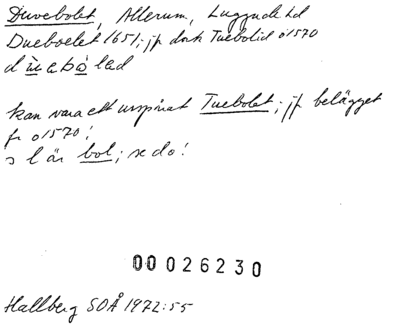 Duvebolet, Allerum, Luggude hd
Dueboelet 1651; jf dock Tuebolid o1570
d ù e b ò l e d
kan vara ett urspr Tuebolet; jf belägget
fr o1570!
s l är bol; se do!
00026230
Hallberg SOÅ 1972:55